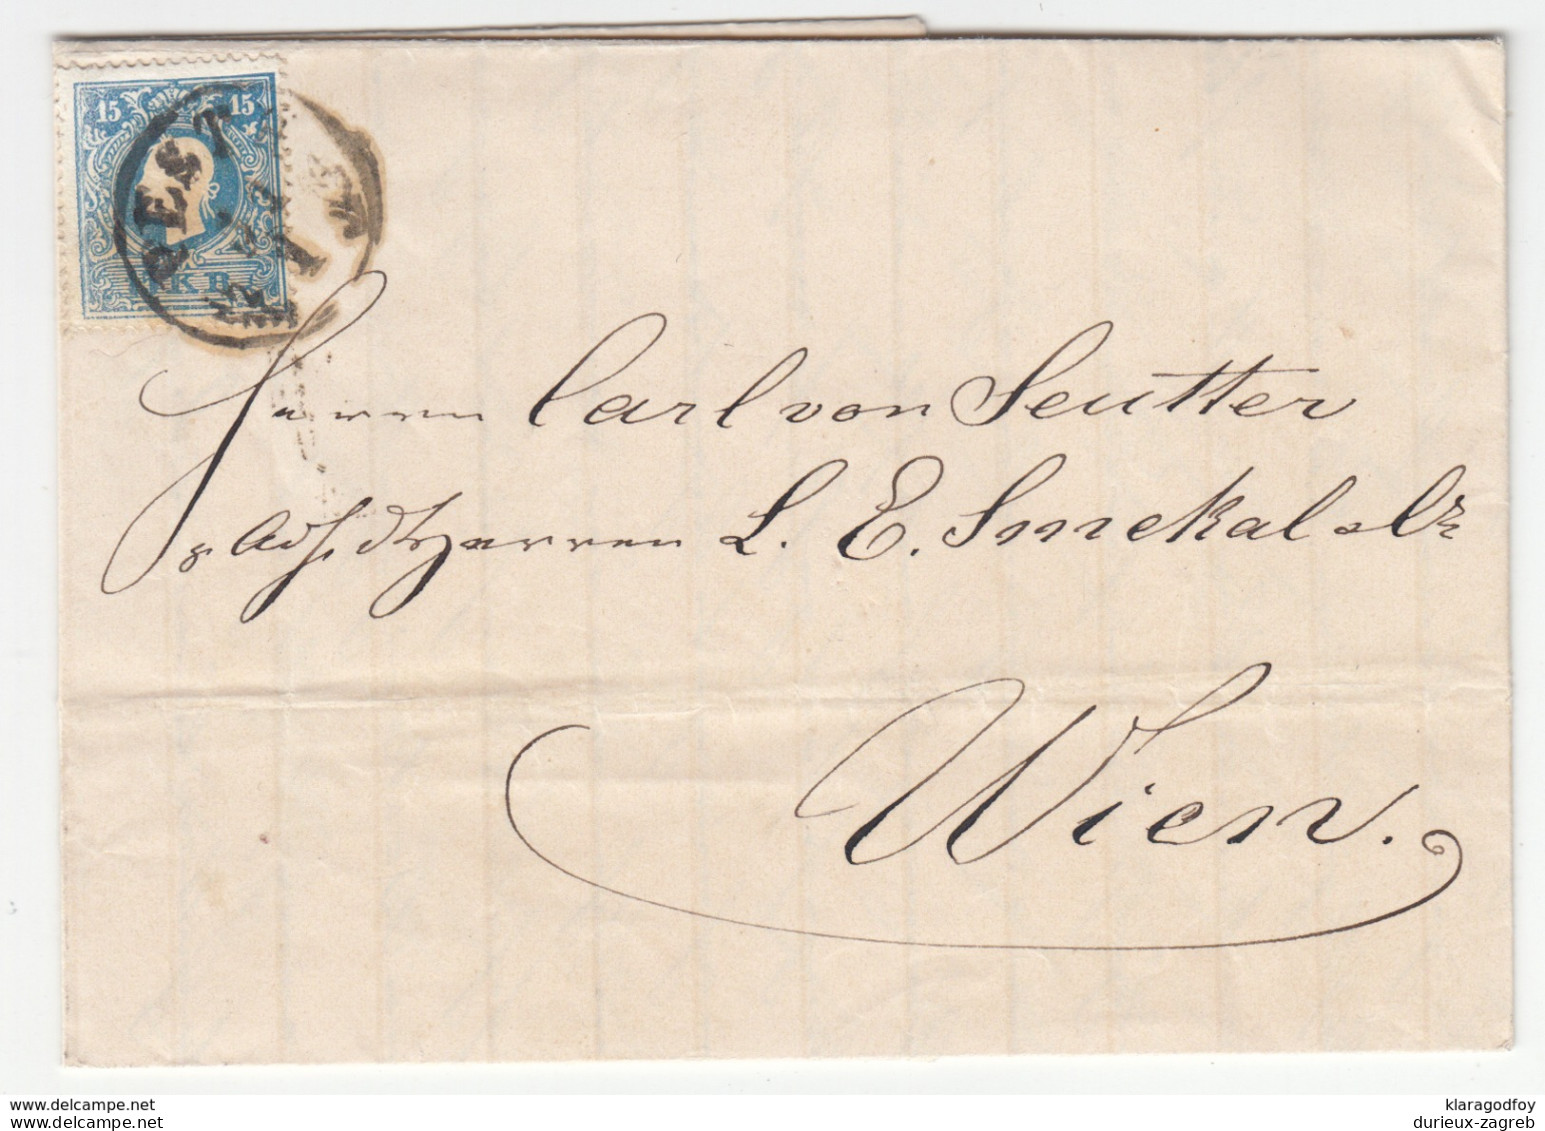 15 15
PEST
KR
Herrn Carl von Seutter
Adr. d Herren L. E. Smekal &
Wien.
www.delcampe.net
www.delcampe.net
klaragodfoy
durieux-zagreb